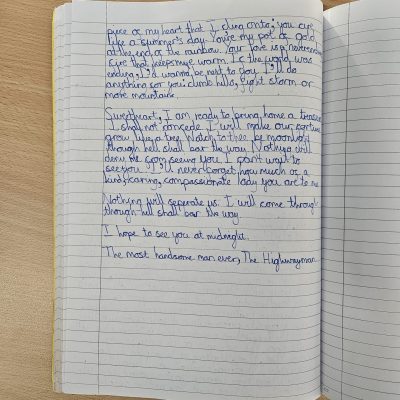 piece of my heart that I cling onto; you are
like a summer's day. You're my pot of gold
at the end of the rainbow. Your love is a neverending
fire that keeps me warm. If the world was
ending, I'd wanna be next to you. I'll do
anything for you: climb hills, fight storm or
move mountains.
Sweetheart, I am ready to bring home a treasure
I shall not concede. I will make our fortune
grow like a tree. Watch to thee be moonlight
though hell shall bar the way. Nothing will
deny me from seeing you. I can't wait to
see you. I'll never forget how much of a
kind, caring, compassionate lady you are to me
Nothing will seperate us. I will come through
though hell shall bar the way.
I hope to see you at midnight.
The most handsome man ever, The Highwayman